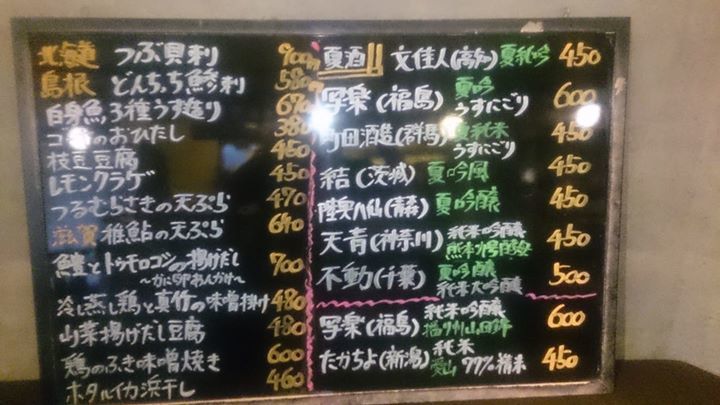 北海道 つぶ貝刺 900
島根 どんちっち鯵刺 580
白身魚3種うす造り 690
のおひたし 380
枝豆豆腐 450
レモンクラゲ 450
つるむらさきの天ぷら 470
滋賀 稚鮎の天ぷら 640
鱧とトウモロコシの揚げだし 700
〜かに卵あんかけ〜
冷し蒸し鶏と真竹の味噌掛け 480
山菜揚げだし豆腐 480
鶏のふき味噌焼き 600
ホタルイカ浜干し 460
夏酒!! 文佳人(高知) 夏純吟 450
写楽(福島) 夏吟 うすにごり 600
町田酒造(群馬) 夏純米 うすにごり 450
結(茨城) 夏吟風 450
陸奥八仙(青森) 夏吟醸 450
天青(神奈川) 純米吟醸 450
不動(千葉) 夏吟醸 純米大吟醸 500
写楽(福島) 純米吟醸 播州山田錦 600
たかちよ(新潟) 純米 愛山 77%精米 450